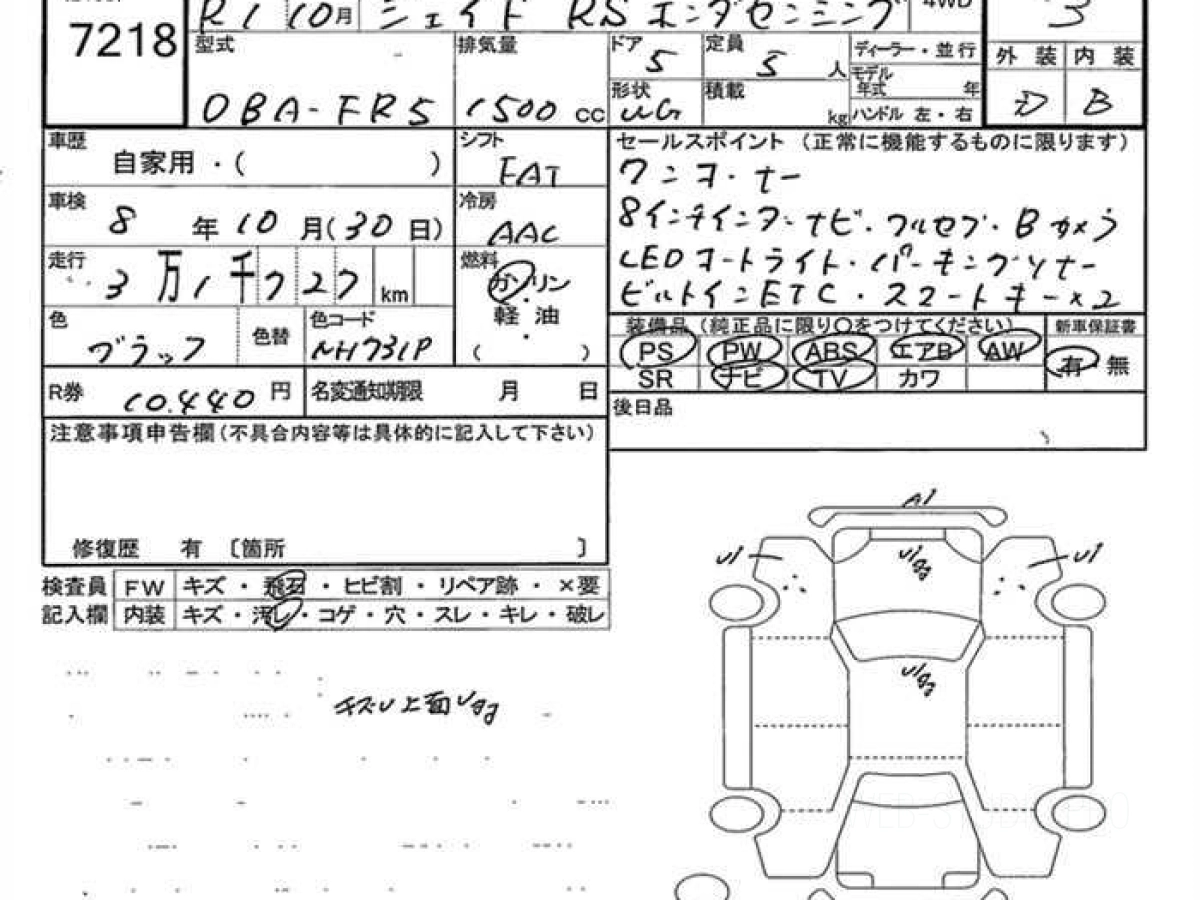 7218
R1 10月 ジェイド RS ホンダセンシング 4WD 3
型式 DBA-FR5
排気量 1500 cc
ドア 5
定員 5 人
形状 WG
積載 kg
ディーラー・並行
モデル年式 年
ハンドル 左・右
外装 D
内装 B
車歴 自家用・( )
シフト FAT
車検 8 年 10 月(30 日)
冷房 AAC
走行 3 万 1 千 7 2 7 km
燃料 ガソリン
・
軽 油
・
( )
色 ブラック
色替
色コード NH731P
R券 10,440 円
名変通知期限 月 日
セールスポイント (正常に機能するものに限ります)
ワンオーナー
8インチインターナビ・フルセグ・Bカメラ
LEDオートライト・パーキングソナー
ビルトインETC・スマートキー×2
装備品 (純正品に限り○をつけてください)
PS PW ABS エアB AW
SR ナビ TV カワ
新車保証書
有・無
後日品
注意事項申告欄 (不具合内容等は具体的に記入して下さい)
修復歴 有 〔箇所 〕
検査員 FW キズ・飛石・ヒビ割・リペア跡・×要
記入欄 内装 キズ・汚し・コゲ・穴・スレ・キレ・破レ
A1
U1
U1